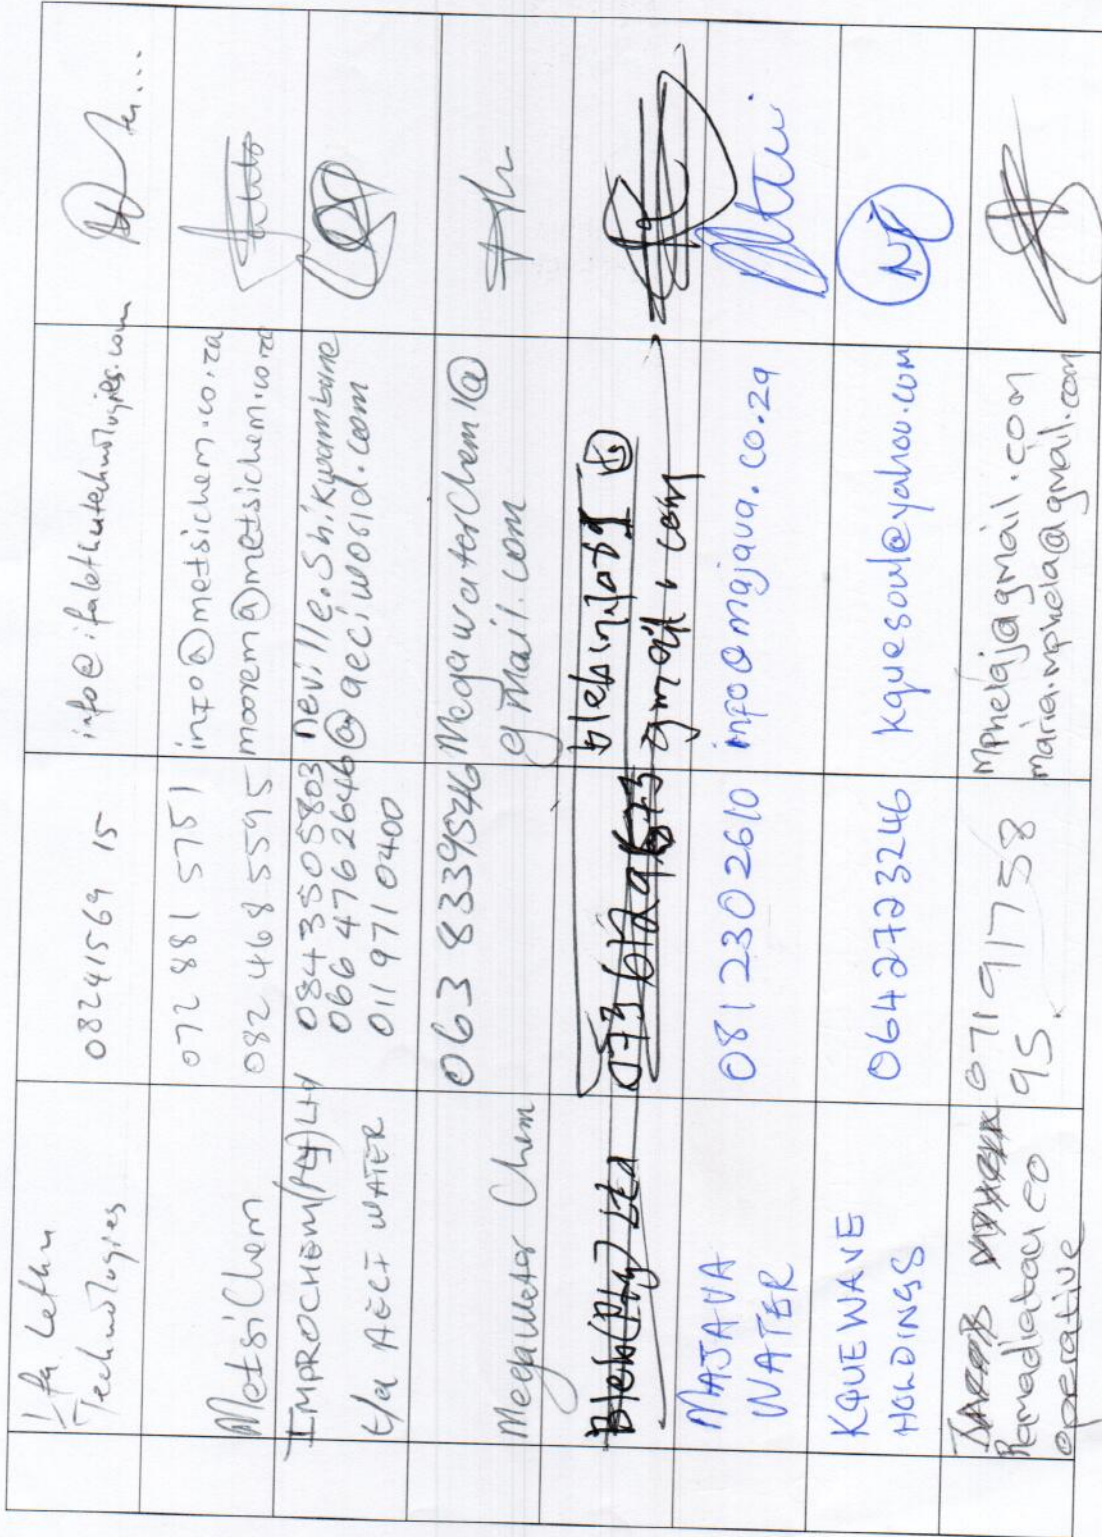 Ifa Lethu
Technologies
082 41569 15
info@ifalethutechnologies.com
MetsiChem
072 881 5751
082 468 5595
info@metsichem.co.za
moorem@metsichem.co.za
IMPROCHEM (Pty) Ltd
t/a AECI WATER
084 350 5803
066 476 2646
011 971 0400
neville.shikwambane
@aeciworld.com
Megawater Chem
063 8339546
Megawaterchem1@
gmail.com
(Pty) Ltd
gmail.com
MAJAVA
WATER
081 230 2610
info@majava.co.za
KQUEWAVE
HOLDINGS
0642723246
kquesoul@yahoo.com
NJ
Remediatau co
operative
071 917 58
95.
Mphelaja gmail.com
maria.mphela@gmail.com